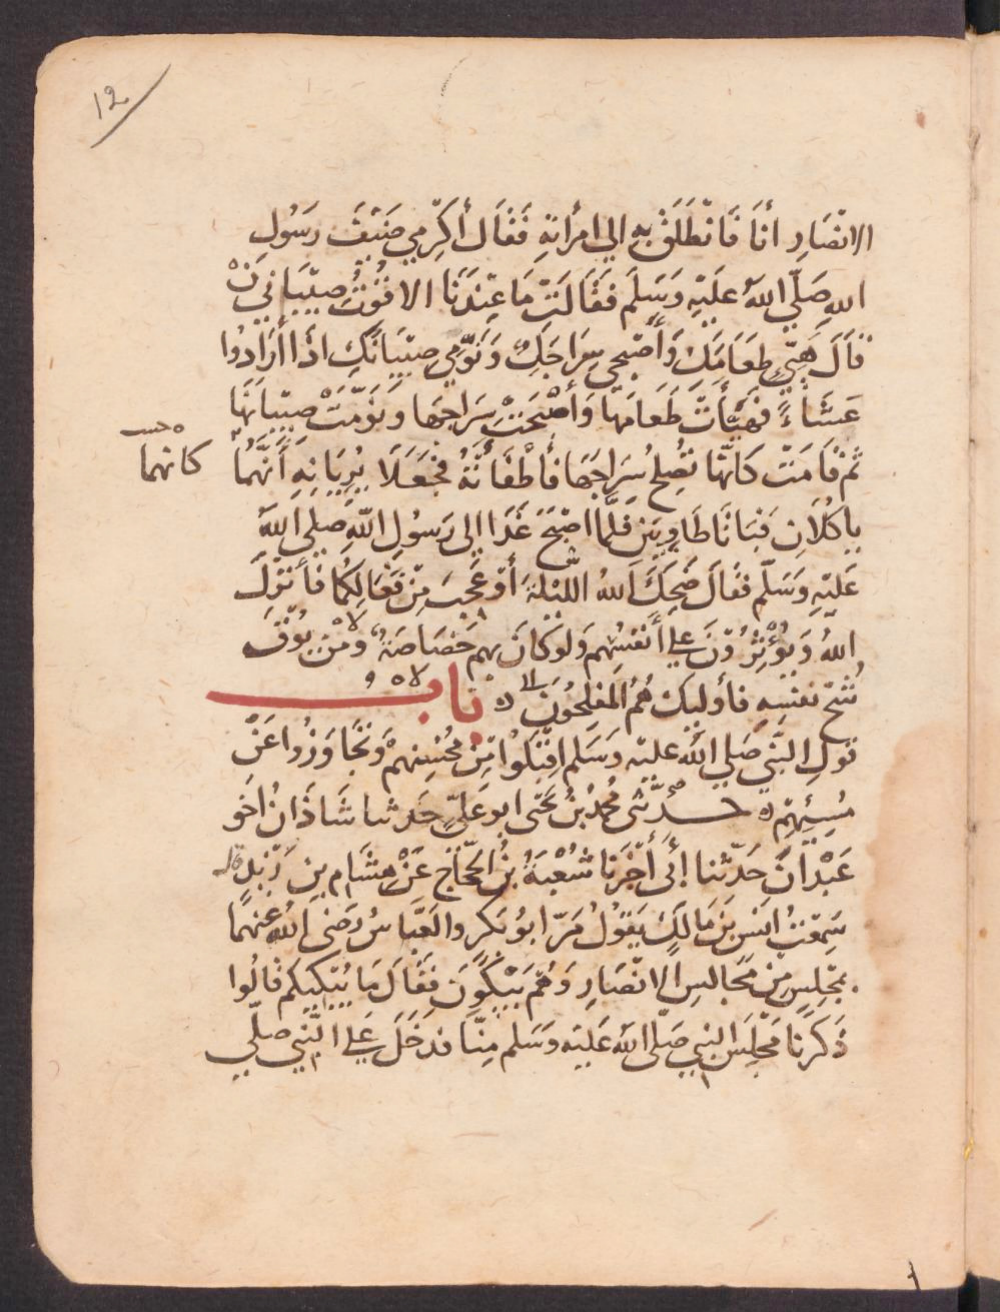 12
الانْصَارِ أنَا فَانْطَلَقَ بِهِ الي امرَأتِهِ فَقَالَ أكْرِمِي ضَيْفَ رسَولِ
اللهِ صَلّي اللهُ علَيْهِ وَسَلّم فقَالَتْ مَا عِنْدَنَا الا قُوْتُ صِبْيَانِي
فَقَالَ هَيّئِ طعَامَكِ وَأصْبِحِي سِرَاجَكِ وَنَوِّمِي صِبْيَانَكِ اذَا أرَادُوا
عَشَاءً فهَيّأتْ طَعَامَهَا وَأصْبَحَتْ سِرَاجَهَا ونَوّمَتْ صِبْيانَهَا
ثمّ قامَتْ كَانّهَا تُصْلِحُ سِرَاجَهَا فأطْفَأتْهُ فجَعَلَا يُرِيَانِهِ أنّهُمَا
كانهما
يأكُلَانِ فبَاتَا طَاوِيَيْنِ فلَمّا اصْبَحَ غَدَا الى رَسُولِ اللهِ صلي اللهُ
عَليْهِ وَسَلّم فقَالَ ضَحِكَ اللهُ اللّيْلَةَ أوْ عَجِبَ مِنْ فَعَالِكُمَا فأنْزَلَ
اللهُ وَيُؤْثِرُوْنَ علي أنْفسُهِم وَلو كانَ بهم خَصَاصَةٌ ومَنْ يُوْقَ
شُحّ نفْسِهِ فأوليِكَ هُمُ المفْلِحُونَ باب
قولِ النّبي صَلي اللهُ عليْه وَسَلم اقْبَلُوا مِنْ مُحْسِنِهِمْ وَتجَاوَزُوا عَنْ
مُسِيئِهِمْ حَدّثنى محمدُ بنُ يَحْيَى ابو عَليٍّ حَدثنا شَاذَانُ اخُو
عَبْدَانَ حَدّثنا أَبِى أخْبَرَنا شُعْبَةُ بْنُ الحَجّاجِ عَنْ هِشَامِ بنِ زَيْدٍ قال
سَمِعْتُ انَسَ بنَ مَالكٍ يَقُوْلُ مَرّ ابُو بَكرٍ والعَبّاسُ رَضىَ اللهُ عنهُمَا
بمَجْلِسٍ مِنْ مَجَالسِ الانْصَارِ وَهُمْ يَبْكُوْنَ فقَالَ مَا يُبْكِيكم قالُوا
ذَكَرْنَا مَجْلِسَ النبي صَلّى اللهُ عَليْه وَسَلم مِنّا فدَخَلَ عَلي النّبي صلّي